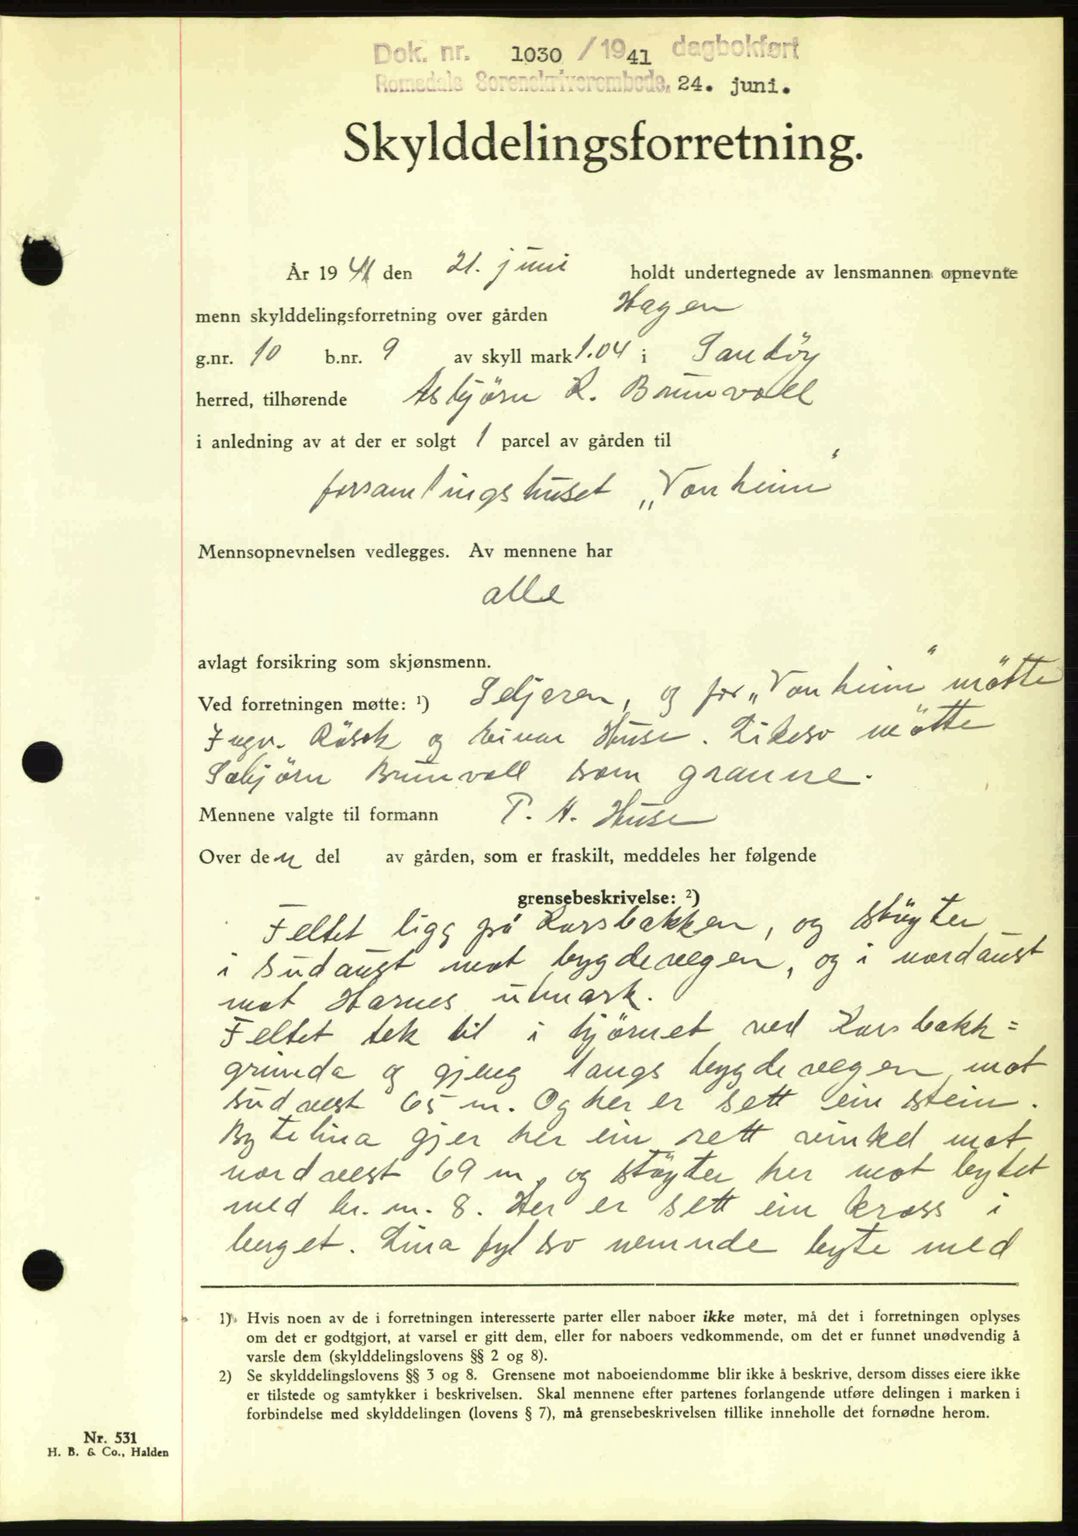 Dok. nr. 1030 / 1941 dagbokført
Romsdals Sorenskriverembede, 24. juni.
Skylddelingsforretning.
År 1941 den 21. juni holdt undertegnede av lensmannen opnevnte
menn skylddelingsforretning over gården Hagen
g.nr. 10 b.nr. 9 av skyll mark 1.04 i Sandöy
herred, tilhørende Asbjørn K. Brunvoll
i anledning av at der er solgt 1 parcel av gården til
forsamlingshuset „Vonheim"
Mennsopnevnelsen vedlegges. Av mennene har
alle
avlagt forsikring som skjønsmenn.
Ved forretningen møtte: ¹) Seljaren, og for „Vonheim" mötte
Ingv. Rösok og Einar Huse. Likeso mötte
Asbjörn Brunvoll som granne.
Mennene valgte til formann P. A. Huse
Over den del av gården, som er fraskilt, meddeles her følgende
grensebeskrivelse: ²)
Feltet ligg på Korsbakken, og stöyter
i sudaust mot bygdevegen, og i nordaust
mot Harnes utmark.
Feltet tek til i hjörnet ved Korsbakk=
grinda og gjeng langs bygdevegen mot
sudvest 65 m. Og her er sett ein stein.
Bytelina gjer her ein rett vinkel mot
nordvest 69 m, og stöyter her mot bytet
med br. nr. 8. Her er sett ein kross i
berget. Lina fyl so nemnde byte med
1) Hvis noen av de i forretningen interesserte parter eller naboer ikke møter, må det i forretningen oplyses
om det er godtgjort, at varsel er gitt dem, eller for naboers vedkommende, om det er funnet unødvendig å
varsle dem (skylddelingslovens §§ 2 og 8).
2) Se skylddelingslovens §§ 3 og 8. Grensene mot naboeiendomme blir ikke å beskrive, dersom disses eiere ikke
er tilstede og samtykker i beskrivelsen. Skal mennene efter partenes forlangende utføre delingen i marken i
forbindelse med skylddelingen (lovens § 7), må grensebeskrivelsen tillike inneholle det fornødne herom.
Nr. 531
H. B. & Co., Halden